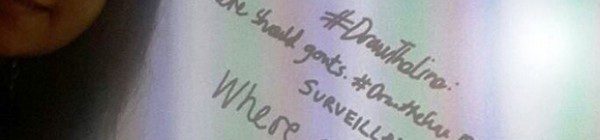 #DrawTheLine:
should gov'ts. #DrawTheLine
SURVEILLA
Where